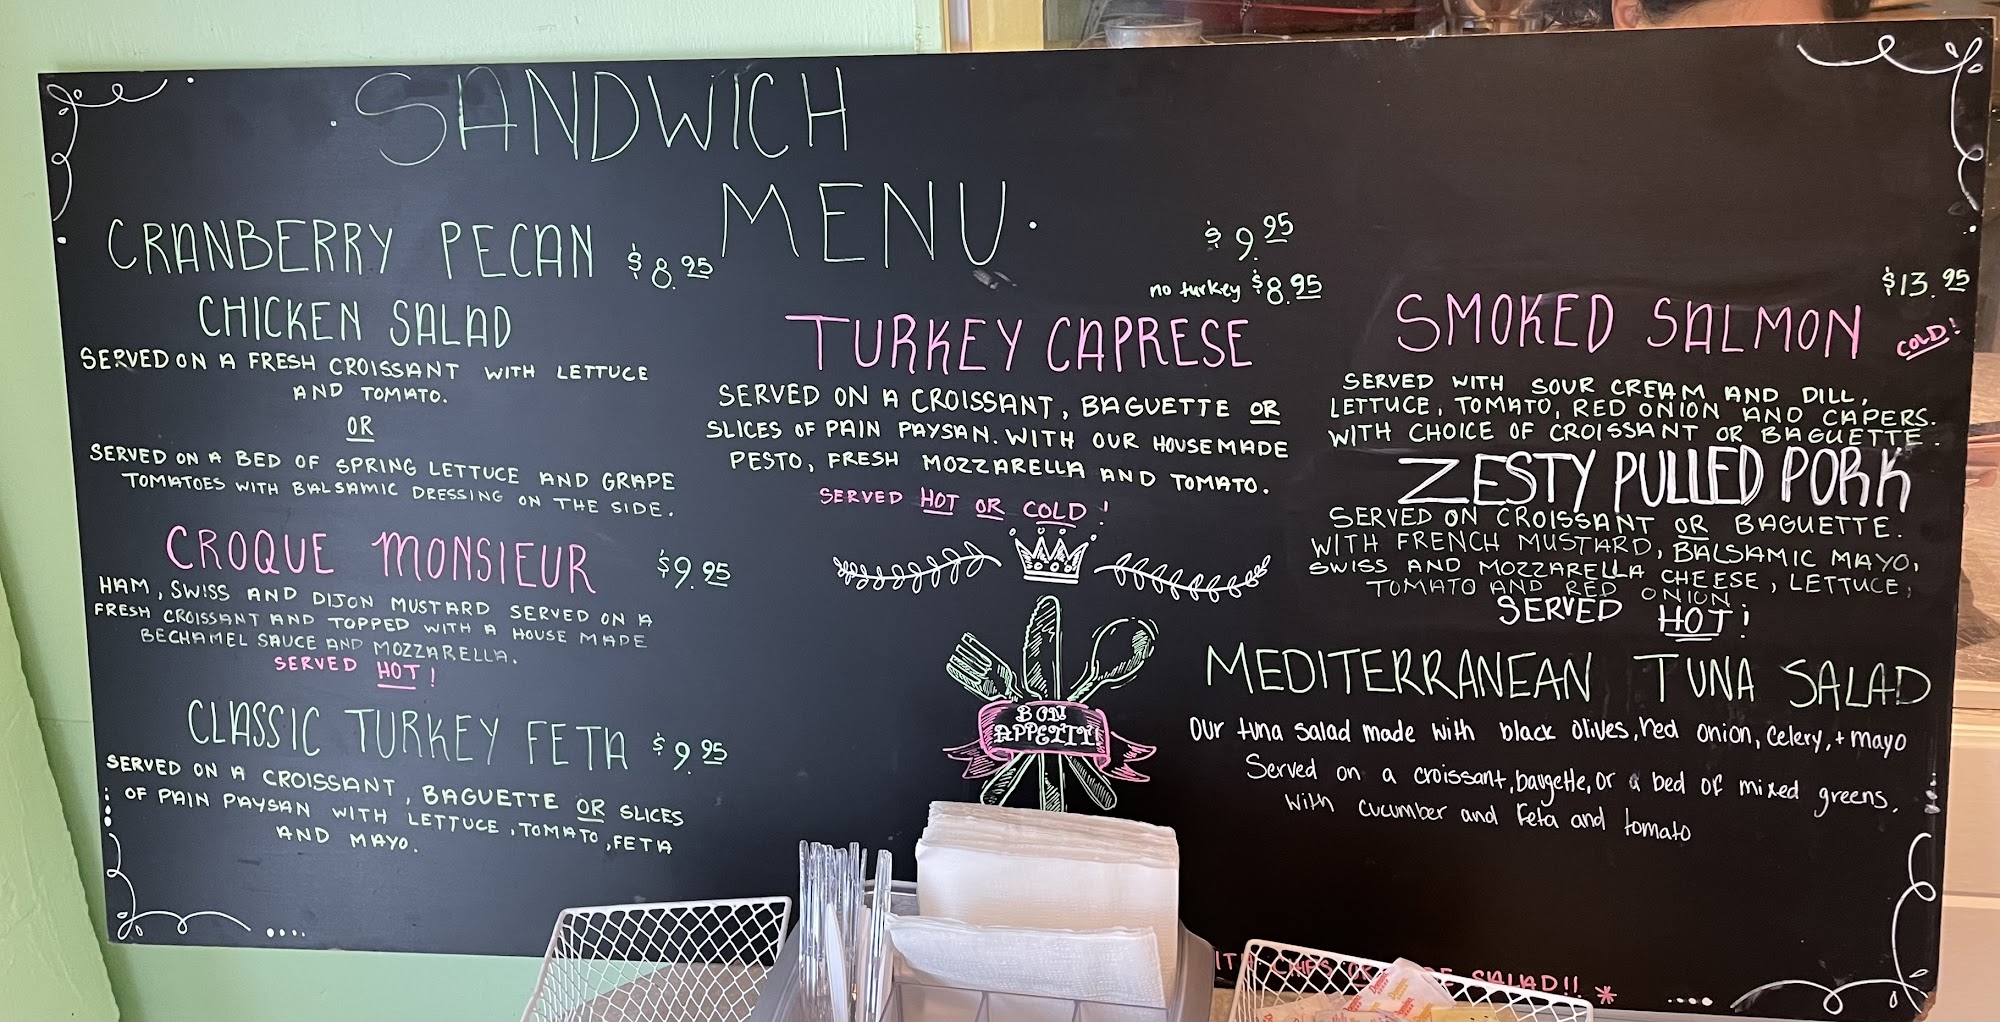 SANDWICH
MENU
CRANBERRY PECAN $8.95
CHICKEN SALAD
SERVED ON A FRESH CROISSANT WITH LETTUCE
AND TOMATO.
OR
SERVED ON A BED OF SPRING LETTUCE AND GRAPE
TOMATOES WITH BALSAMIC DRESSING ON THE SIDE.
CROQUE MONSIEUR $9.95
HAM, SWISS AND DIJON MUSTARD SERVED ON A
FRESH CROISSANT AND TOPPED WITH A HOUSE MADE
BECHAMEL SAUCE AND MOZZARELLA.
SERVED HOT!
CLASSIC TURKEY FETA $9.95
SERVED ON A CROISSANT, BAGUETTE OR SLICES
OF PAIN PAYSAN WITH LETTUCE, TOMATO, FETA
AND MAYO.
$9.95
no turkey $8.95
TURKEY CAPRESE
SERVED ON A CROISSANT, BAGUETTE OR
SLICES OF PAIN PAYSAN. WITH OUR HOUSEMADE
PESTO, FRESH MOZZARELLA AND TOMATO.
SERVED HOT OR COLD!
BON
APPETIT!
$13.95
SMOKED SALMON COLD!
SERVED WITH SOUR CREAM AND DILL,
LETTUCE, TOMATO, RED ONION AND CAPERS.
WITH CHOICE OF CROISSANT OR BAGUETTE.
ZESTY PULLED PORK
SERVED ON CROISSANT OR BAGUETTE.
WITH FRENCH MUSTARD, BALSAMIC MAYO,
SWISS AND MOZZARELLA CHEESE, LETTUCE,
TOMATO AND RED ONION
SERVED HOT!
MEDITERRANEAN TUNA SALAD
Our tuna salad made with black olives, red onion, celery, + mayo
Served on a croissant, baugette, or a bed of mixed greens.
With cucumber and Feta and tomato
CHIPS OR SALAD!! *